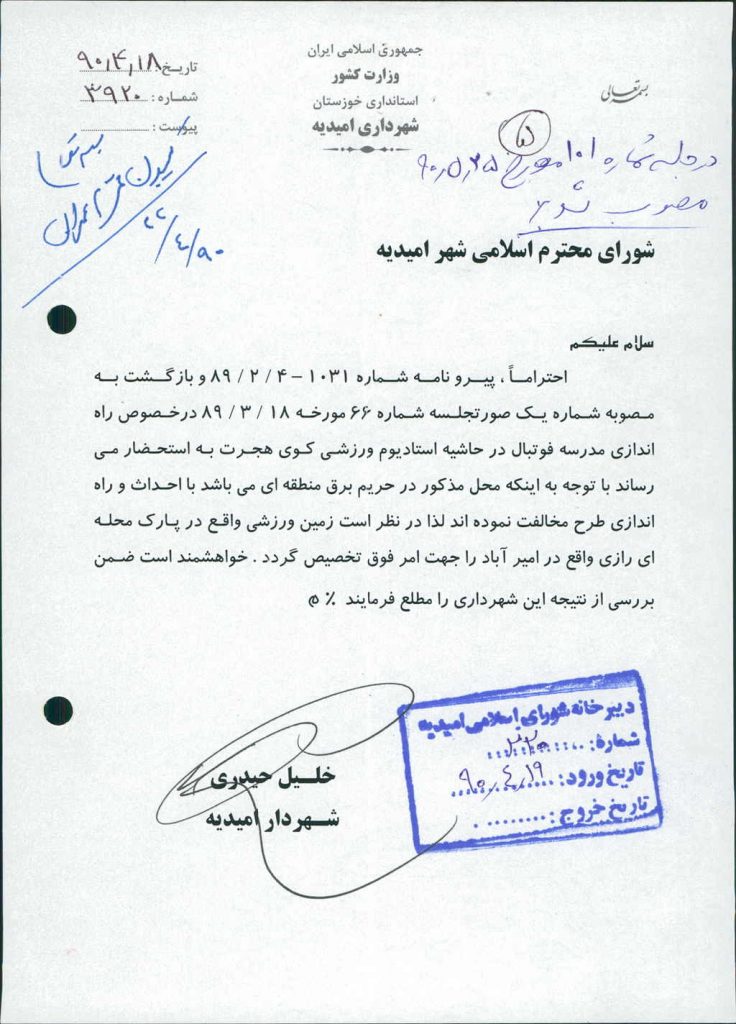 بسمه تعالی
جمهوری اسلامی ایران
وزارت کشور
استانداری خوزستان
شهرداری امیدیه
تاریخ: ۹۰٫۴٫۱۸
شماره: ۳۹۲۰
پیوست:
بسمه تعالی
۲۲/۴/۹۰
۵
در جلسه شماره ۱۰۱ مورخ ۹۰٫۵٫۲۵
مصوب شد
شورای محترم اسلامی شهر امیدیه
سلام علیکم
احتراماً ، پیرو نامه شماره ۱۰۳۱ – ۴ / ۲ / ۸۹ و بازگشت به
مصوبه شماره یک صورتجلسه شماره ۶۶ مورخه ۱۸ / ۳ / ۸۹ درخصوص راه
اندازی مدرسه فوتبال در حاشیه استادیوم ورزشی کوی هجرت به استحضار می
رساند با توجه به اینکه محل مذکور در حریم برق منطقه ای می باشد با احداث و راه
اندازی طرح مخالفت نموده اند لذا در نظر است زمین ورزشی واقع در پارک محله
ای رازی واقع در امیر آباد را جهت امر فوق تخصیص گردد . خواهشمند است ضمن
بررسی از نتیجه این شهرداری را مطلع فرمایند ٪ م
خلیل حیدری
شهردار امیدیه
دبیرخانه شورای اسلامی امیدیه
شماره: ۲۲۰
تاریخ ورود: ۹۰٫۴٫۱۹
تاریخ خروج: